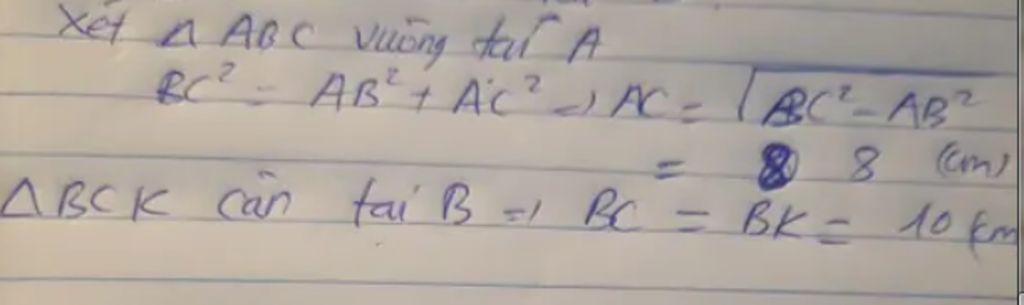 Xét Δ ABC vuông tại A
BC² = AB² + AC² => AC = √BC² - AB²
= 8 (cm)
ΔBCK cân tại B => BC = BK = 10 cm